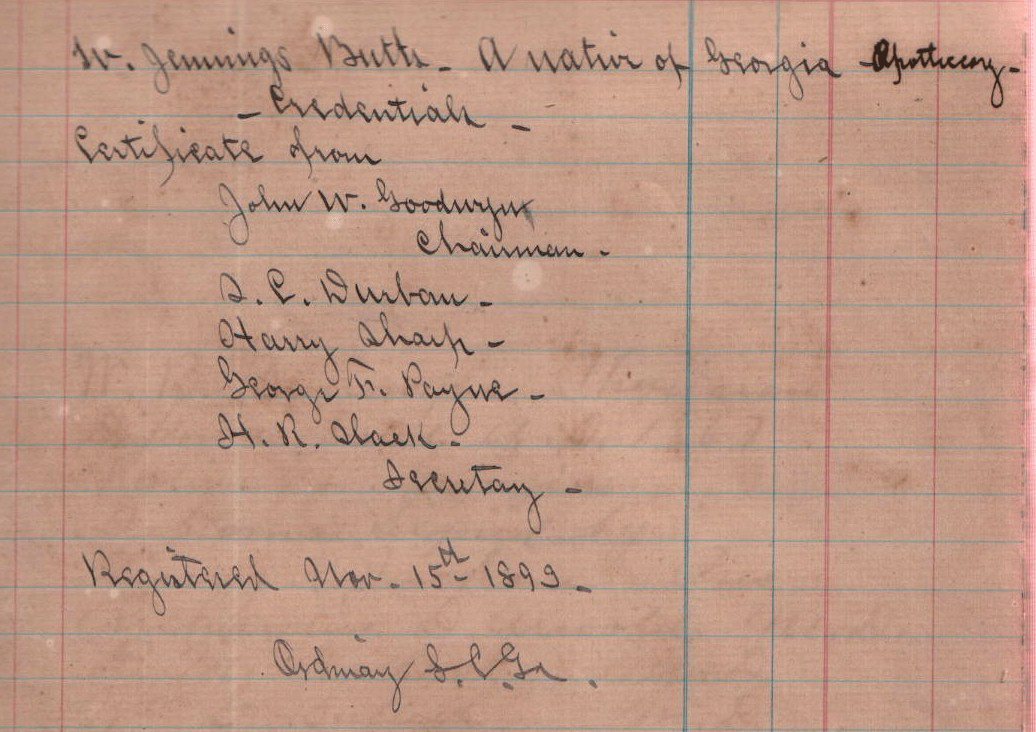 W. Jennings Butts - A native of Georgia - Apothecary -
- Credentials -
Certificate from
John W. Goodwyn
Chairman -
S. C. Durban -
Harry Sharp -
George F. Payne -
H. R. Slack -
Secretary -
Registered Nov - 15th - 1899 -
Ordinary S.C. Ga.